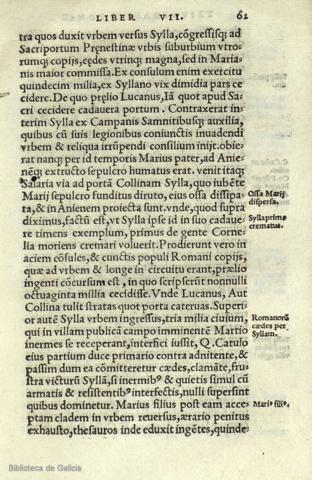 LIBER VII. 62
tra quos duxit vrbem versus Sylla, cōgressisq; ad
Sacriportum Pręnestinæ vrbis suburbium vtro-
rumq; copijs, cędes vtrinq; magna, sed in Maria-
nis maior commissa. Ex consulum enim exercitu
quindecim milia, ex Syllano vix dimidia pars ce
cidere. De quo pręlio Lucanus, Iā quot apud Sa-
cri cecidere cadauera portum. Contraxerat in-
terim Sylla ex Campanis Samnitibusq; auxilia,
quibus cū suis legionibus coniunctis inuadendi
vrbem & reliqua irrūpendi consilium inijt. obie-
rat nanq; per id temporis Marius pater, ad Anie-
nēq; extructo sepulcro humatus erat. venit itaq;
Salaria via ad portā Collinam Sylla, quo iubēte
Marij sepulcro funditus diruto, eius ossa dissipa-
ta, & in Anienem proiecta sunt. vnde, quod supra
diximus, factū est, vt Sylla ipse id in suo cadaue-
ra timens exemplum, primus de gente Corne-
lia moriens cremari voluerit. Prodierunt vero in
aciem cōsules, & cunctis populi Romani copijs,
quæ ad vrbem & longe in circuitu erant, præ̨lio
ingenti cōcursum est, in quo scripserūt nonnulli
octuaginta millia cecidisse. Vnde Lucanus, Aut
Collina tulit stratas quot porta cateruas. Superi-
or autē Sylla vrbem ingressus, tria milia ciuium,
qui in villam publicā campo imminentē Martio
inermes se receperant, interfici iussit, Q. Catulo
eius partium duce primario contra adnitente, &
passim dum ea cōmitteretur cædes, clamāte, fru-
stra victurū Syllā, si inermibꝰ & quietis simul cū
armatis & resistentibꝰ interfectis, nulli supersint
quibus dominetur. Marius filius post eam acce
ptam cladem in vrbem reuersus, ærario penitus
exhausto, thesauros inde eduxit ingētes, quinde-
Ossa Marij
dispersa,
Sylla primꝰ
crematus.
Romanorū
cædes per
Syllam.
Mariꝰ filiꝰ.
Biblioteca de Galicia